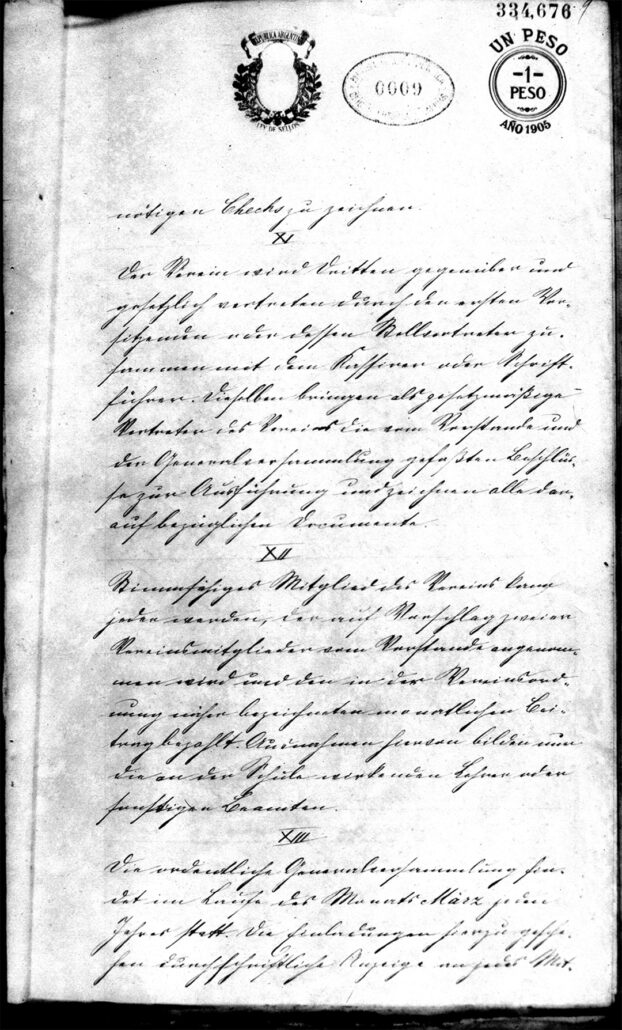 334,676
REPUBLICA ARGENTINA
LEY DE SELLOS
0009
UN PESO
-1-
PESO
AÑO 1905
nötigen Checks zu zeichnen.
XI
Der Verein wird Dritten gegenüber und
gesetzlich vertreten durch den ersten Vor-
sitzenden oder dessen Stellvertreter zu-
sammen mit dem Kassirer oder Schrift-
führer. Dieselben bringen als gesetzmäßige
Vertreter des Vereins die vom Vorstande und
der Generalversammlung gefaßten Beschlüs-
se zur Ausführung und zeichnen alle dar-
auf bezüglichen Documente.
XII
Stimmfähiges Mitglied des Vereins kann
jeder werden, der auf Vorschlag zweier
Vereinsmitglieder vom Vorstande angenom-
men wird und den in der Vereinsord-
nung näher bezeichneten monatlichen Bei-
trag bezahlt. Ausnahmen hiervon bilden nur
die an der Schule wirkenden Lehrer oder
sonstigen Beamten.
XIII
Die ordentliche Generalversammlung fin-
det im Laufe des Monats März jeden
Jahres statt. Die Einladungen hierzu gesche-
hen durch schriftliche Anzeige an jedes Mit-